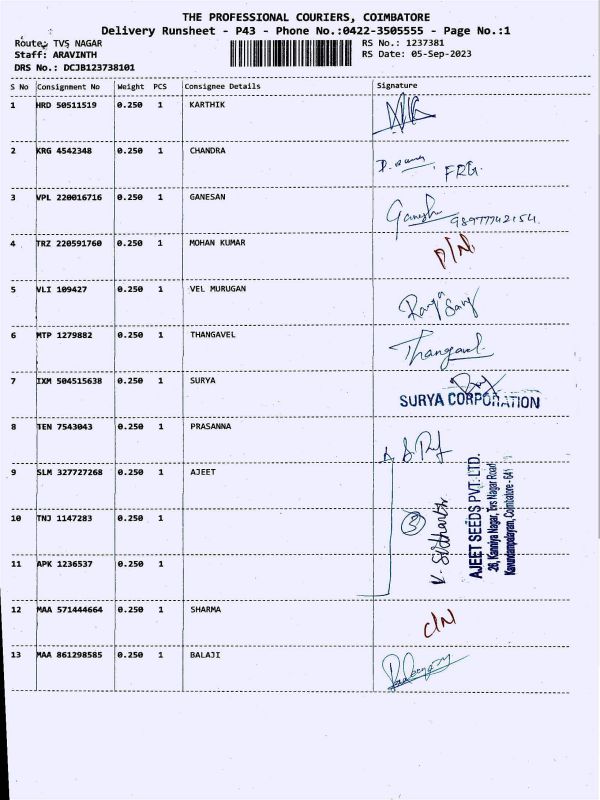 THE PROFESSIONAL COURIERS, COIMBATORE
Delivery Runsheet - P43 - Phone No.:0422-3505555 - Page No.:1
Route: TVS NAGAR RS No.: 1237381
Staff: ARAVINTH RS Date: 05-Sep-2023
DRS No.: DCJB123738101
S No Consignment No Weight PCS Consignee Details Signature
1 HRD 50511519 0.250 1 KARTHIK
2 KRG 4542348 0.250 1 CHANDRA
FRG.
3 VPL 220016716 0.250 1 GANESAN
Ganesh
4 TRZ 220591760 0.250 1 MOHAN KUMAR D/N
5 VLI 109427 0.250 1 VEL MURUGAN
6 MTP 1279882 0.250 1 THANGAVEL
Thangavel
7 IXM 504515638 0.250 1 SURYA
SURYA CORPORATION
8 TEN 7543043 0.250 1 PRASANNA
9 SLM 327727268 0.250 1 AJEET
10 TNJ 1147283 0.250 1
11 APK 1236537 0.250 1
3
AJEET SEEDS PVT. LTD.
26, Kanniya Nagar, Tvs Nagar Road
Kavundampalayam, Coimbatore - 641
12 MAA 571444664 0.250 1 SHARMA
13 MAA 861298585 0.250 1 BALAJI